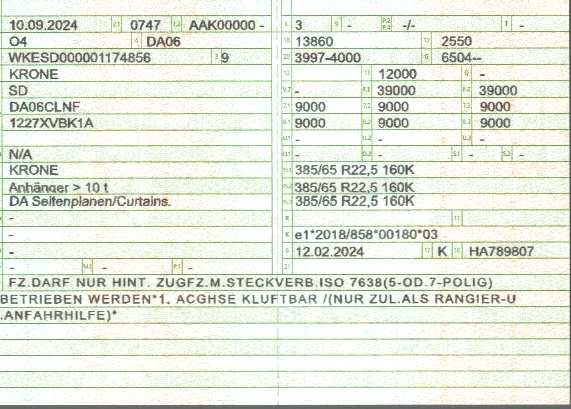 10.09.2024 2.1 0747 2.2 AAK00000 - L 3 9 - P.2 P.4 -/- T -
O4 4 DA06 18 13860 19 2550
WKESD000001174856 3 9 20 3997-4000 G 6504--
KRONE 12 13 12000 Q -
SD V.7 - F.1 39000 F.2 39000
DA06CLNF 7.1 9000 7.2 9000 7.3 9000
1227XVBK1A 8.1 9000 8.2 9000 8.3 9000
- U.1 - U.2 - U.3 -
N/A O.1 - O.2 - S.1 - S.2 -
KRONE 15.1 385/65 R22,5 160K
Anhänger > 10 t 15.2 385/65 R22,5 160K
DA Seitenplanen/Curtains. 15.3 385/65 R22,5 160K
- R 11
- K e1*2018/858*00180*03
- 6 12.02.2024 17 K 16 HA789807
- 14.1 - P.1 - 21
FZ.DARF NUR HINT. ZUGFZ.M.STECKVERB.ISO 7638(5-OD.7-POLIG)
BETRIEBEN WERDEN*1, ACGHSE KLUFTBAR /(NUR ZUL.ALS RANGIER-U
.ANFAHRHILFE)*